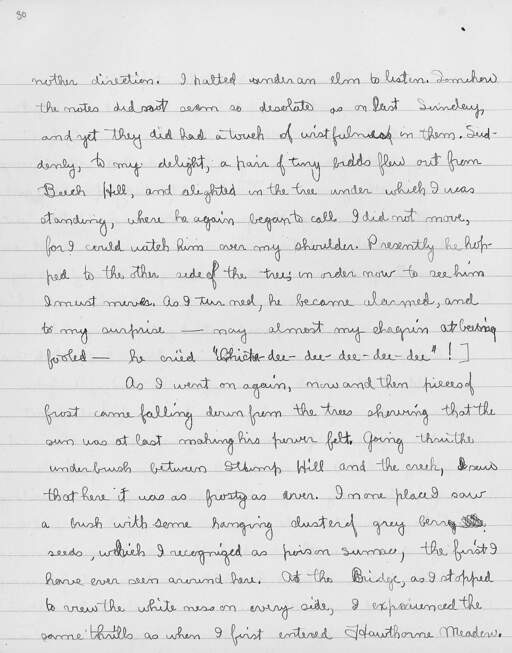 30
nother direction. I halted under an elm to listen. Somehow
the notes did not seem so desolate as on last Sunday,
and yet they did had a touch of wistfulness in them. Sud-
denly, to my delight, a pair of tiny birds flew out from
Beech Hill, and alighted in the tree under which I was
standing, where he again began to call. I did not move,
for I could watch him over my shoulder. Presently he hop-
ped to the other side of the tree; in order now to see him
I must move. As I turned, he became alarmed, and
to my surprise — nay almost my chagrin at being
fooled — he cried "Chick-dee-dee-dee-dee-dee"! ]
As I went on again, now and then pieces of
frost came falling down from the trees showing that the
sun was at last making his power felt. Going thru the
underbrush between Stump Hill and the creek, I saw
that here it was as frosty as ever. In one place I saw
a bush with some hanging cluster of grey berry
seeds, which I recognized as poison sumac, the first I
have ever seen around here. At the Bridge, as I stopped
to view the whiteness on every side, I experienced the
same thrills as when I first entered Hawthorne Meadow.